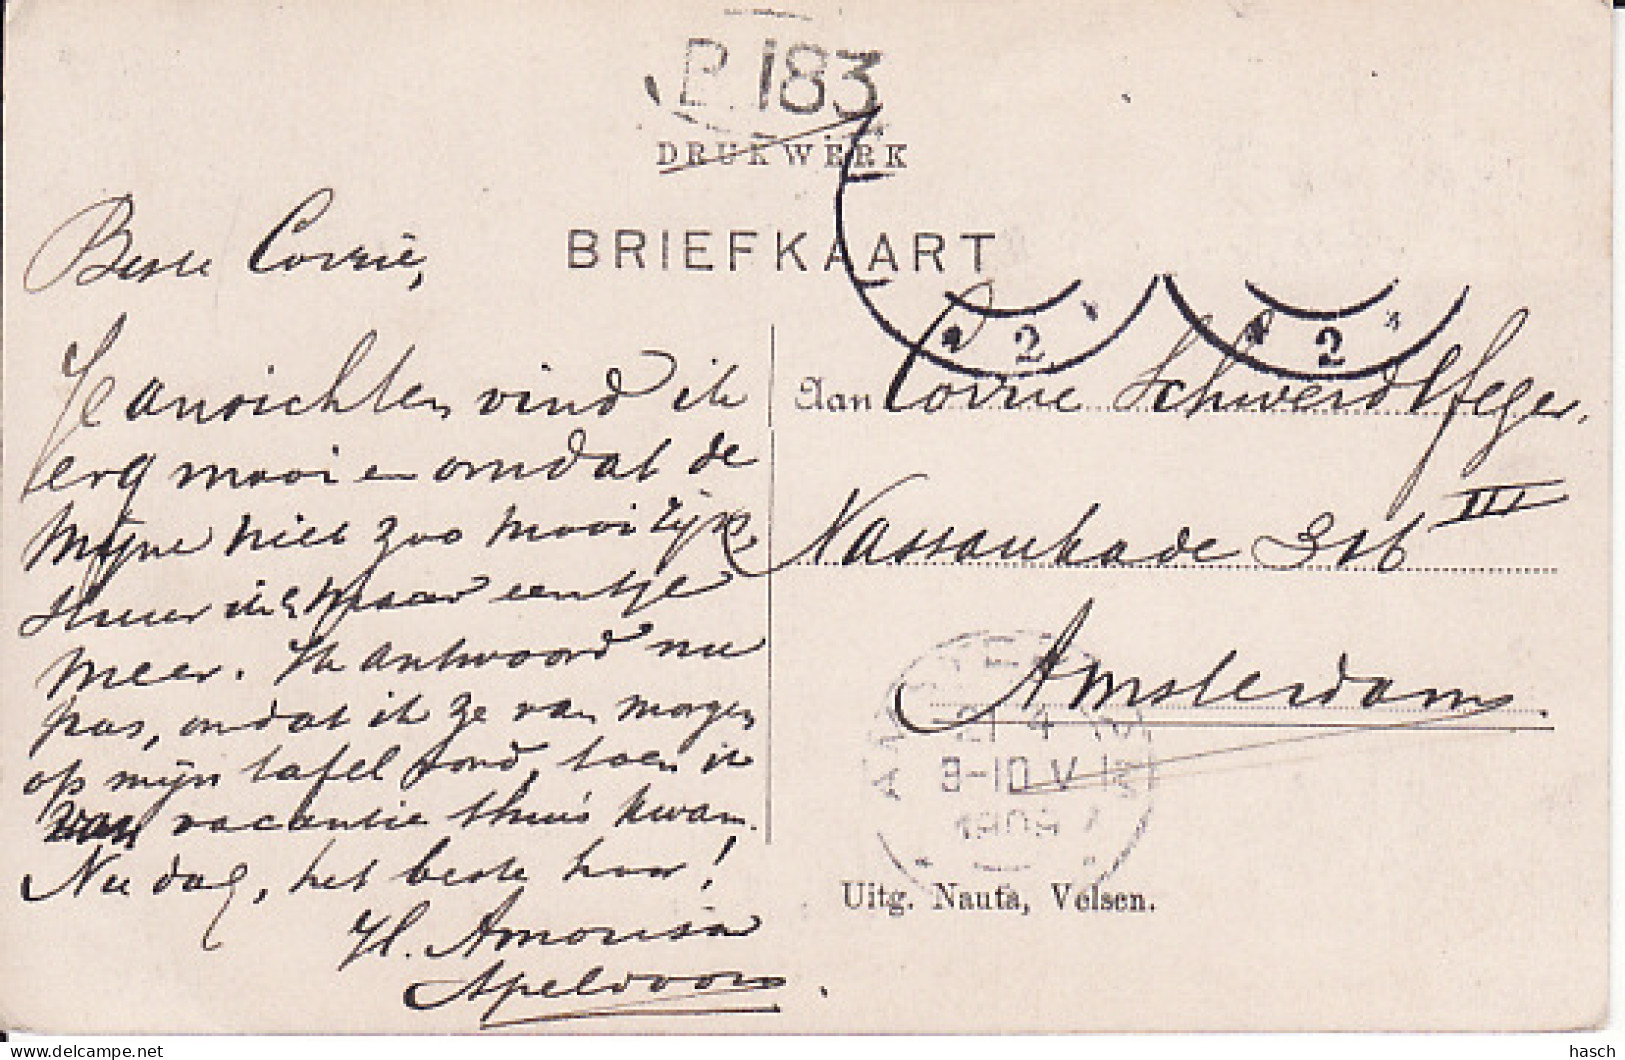 P. 183
DRUKWERK
BRIEFKAART
Beste Corrie,
Je ansichten vind ik
erg mooi en omdat de
mijne niet zoo mooi lijk
stuur ik maar eentje
meer. Ik antwoord nu
pas, omdat ik ze van morgen
op mijn tafel vond, toen ik
van vacantie thuis kwam.
Nu dag, het beste hoor!
H.
Apeldoorn.
Aan Corrie Schwerdtfeger.
Nassaukade 316 III
Amsterdam.
2
2
9-10 V
1909
Uitg. Nauta, Velsen.
delcampe.net
hasch